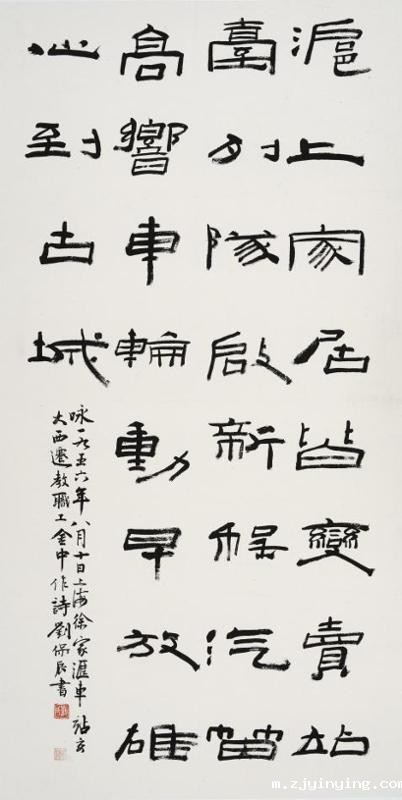 滬上家居皆變賣站
臺列隊啟新程汽笛
高響車輪動早放雄
心到古城
咏一九五六年八月十日上海徐家滙車站交
大西遷教職工金中作詩劉保辰書